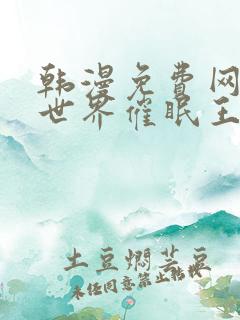 韩漫免费网
世界催眠王
土豆焖芸豆
未经同意禁止转载